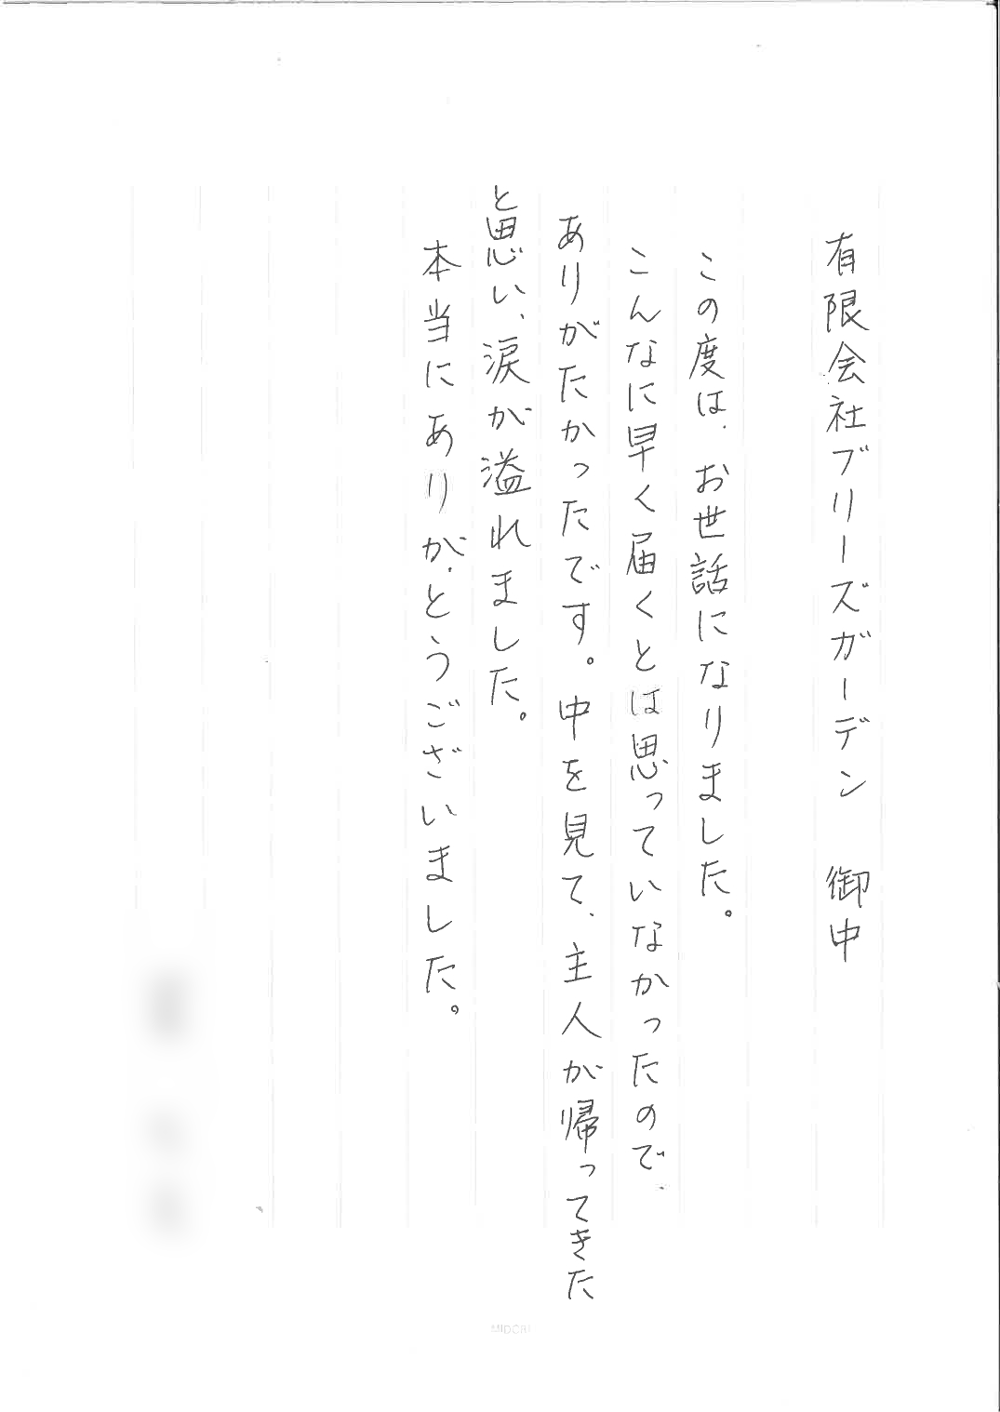 有限会社ブリーズガーデン 御中
この度は、お世話になりました。
こんなに早く届くとは思っていなかったので、
ありがたかったです。中を見て、主人が帰ってきた
と思い、涙が溢れました。
本当にありがとうございました。
MIDORI